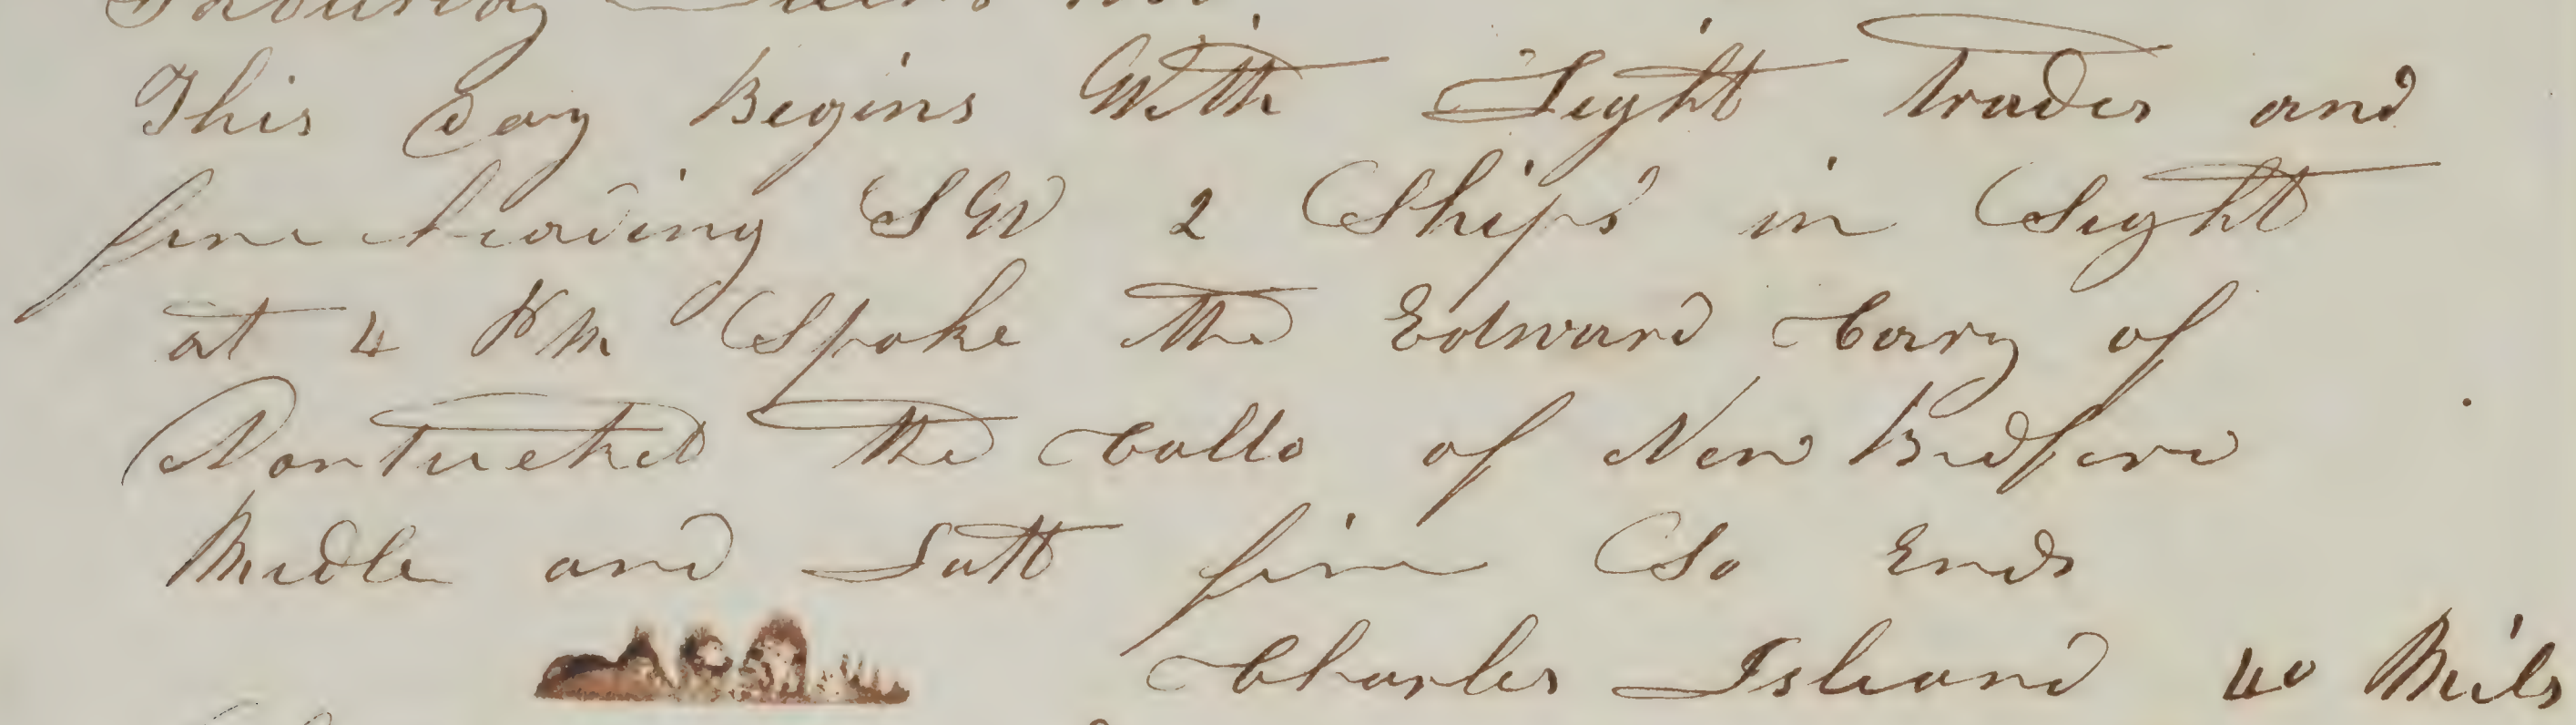 Thursday
This day Begins With Light trades and
fine heading SW 2 Ships in Sight
at 4 PM Spoke the Edward Cary of
Nantucket the Callo of New Bedford
Midle and Latt fine So Ends
Charles Island 40 Miles